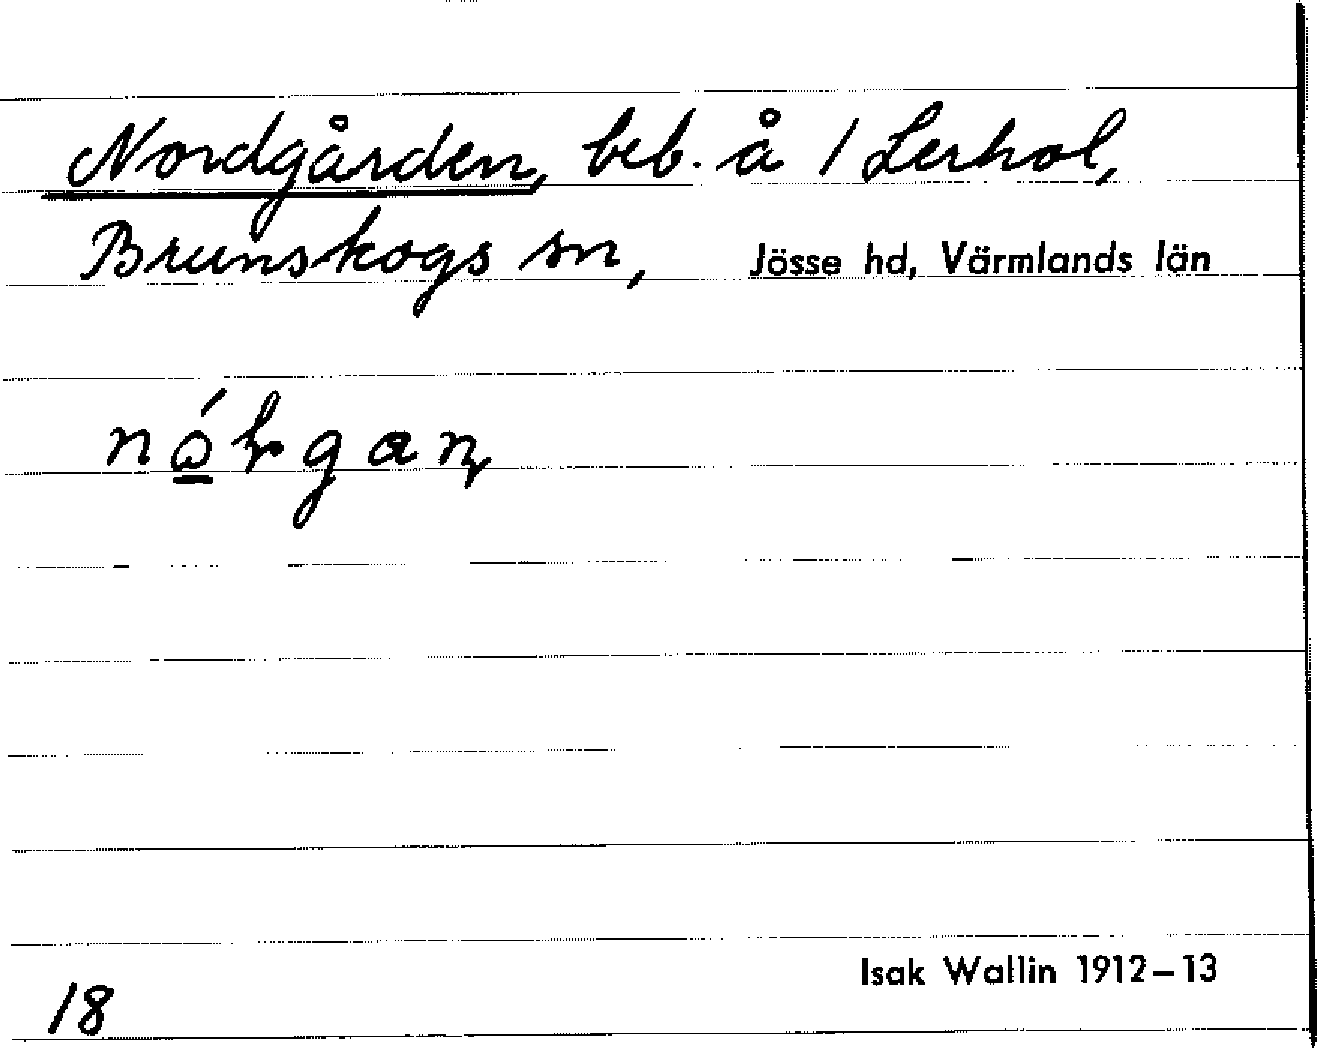 Nordgården, beb. å 1 Lerhol,
Brunskogs sn, Jösse hd, Värmlands län
Isak Wallin 1912–13
18